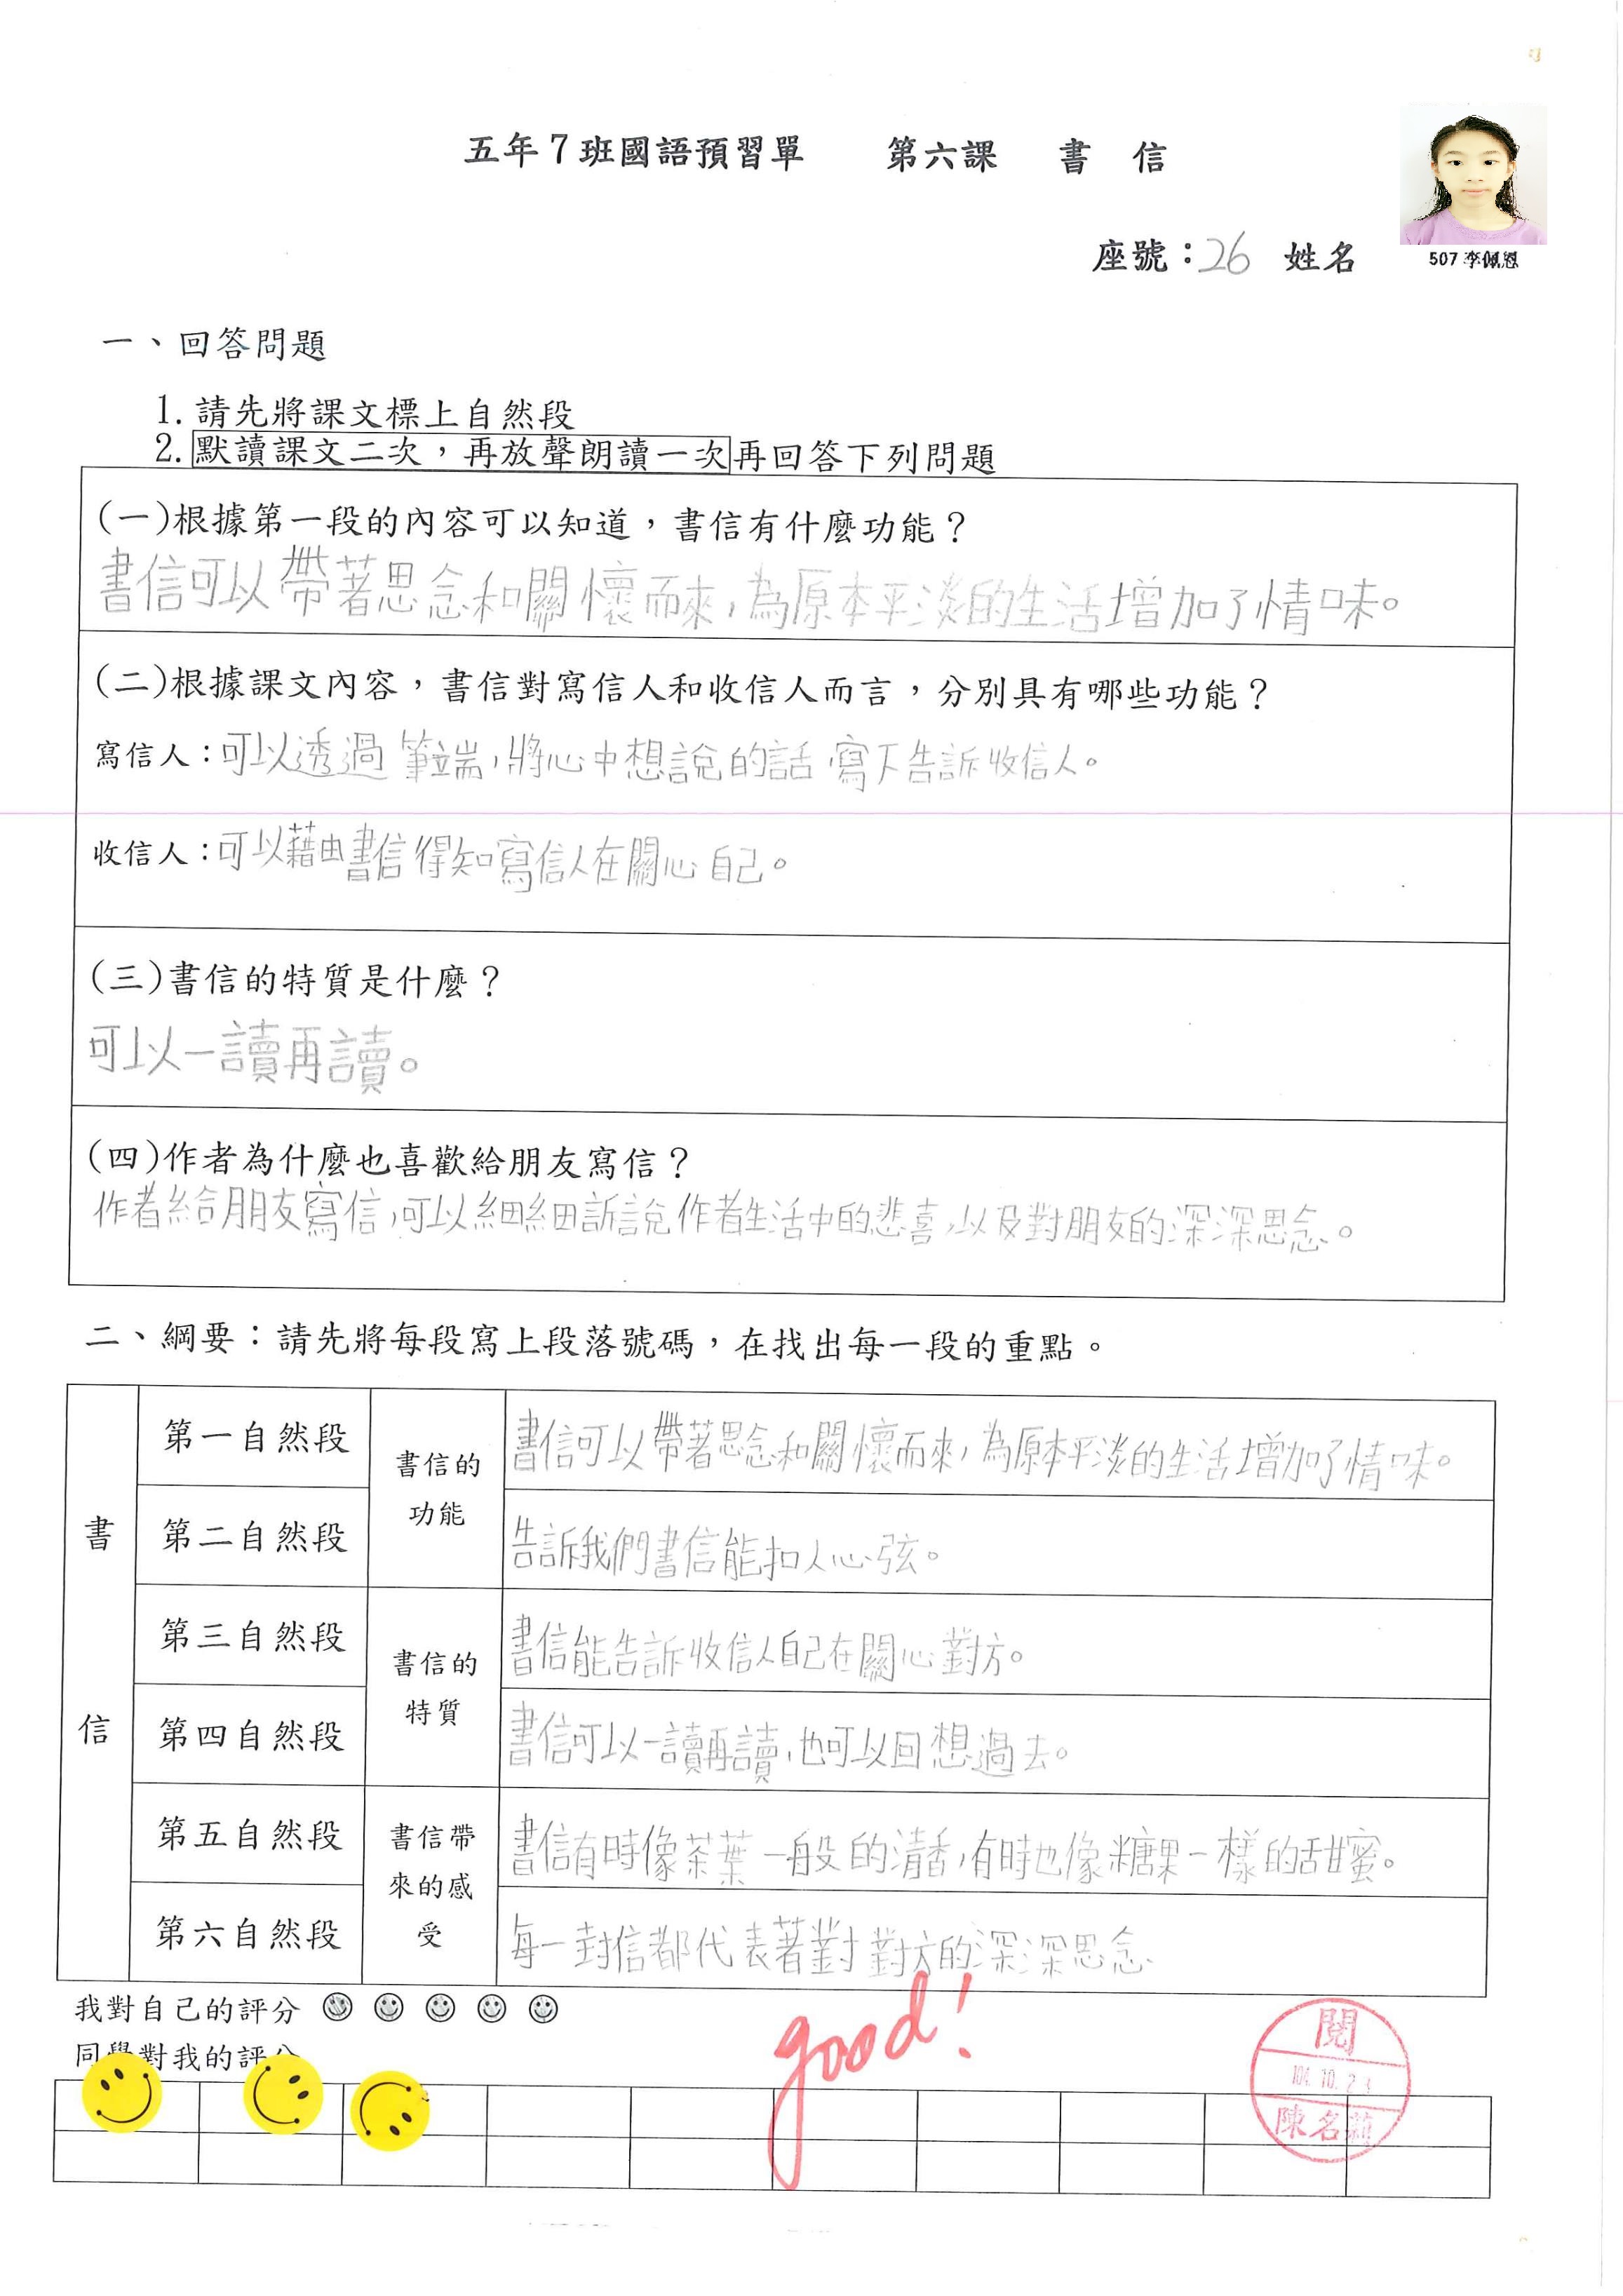 五年7班國語預習單　　第六課　　書　信
座號：26　姓名
507 李佩恩
一、回答問題
1. 請先將課文標上自然段
2. 默讀課文二次，再放聲朗讀一次再回答下列問題
(一)根據第一段的內容可以知道，書信有什麼功能？
書信可以帶著思念和關懷而來，為原本平淡的生活增加了情味。
(二)根據課文內容，書信對寫信人和收信人而言，分別具有哪些功能？
寫信人：可以透過筆端，將心中想說的話寫下告訴收信人。
收信人：可以藉由書信得知寫信人在關心自己。
(三)書信的特質是什麼？
可以一讀再讀。
(四)作者為什麼也喜歡給朋友寫信？
作者給朋友寫信，可以細細訴說作者生活中的悲喜，以及對朋友的深深思念。
二、綱要：請先將每段寫上段落號碼，在找出每一段的重點。
書信
第一自然段
第二自然段
書信的
功能
書信可以帶著思念和關懷而來，為原本平淡的生活增加了情味。
告訴我們書信能扣人心弦。
第三自然段
第四自然段
書信的
特質
書信能告訴收信人自己在關心對方。
書信可以一讀再讀，也可以回想過去。
第五自然段
第六自然段
書信帶
來的感
受
書信有時像茶葉一般的清香，有時也像糖果一樣的甜蜜。
每一封信都代表著對對方的深深思念
我對自己的評分
同學對我的評分
good!
閱
104.10.2
陳名